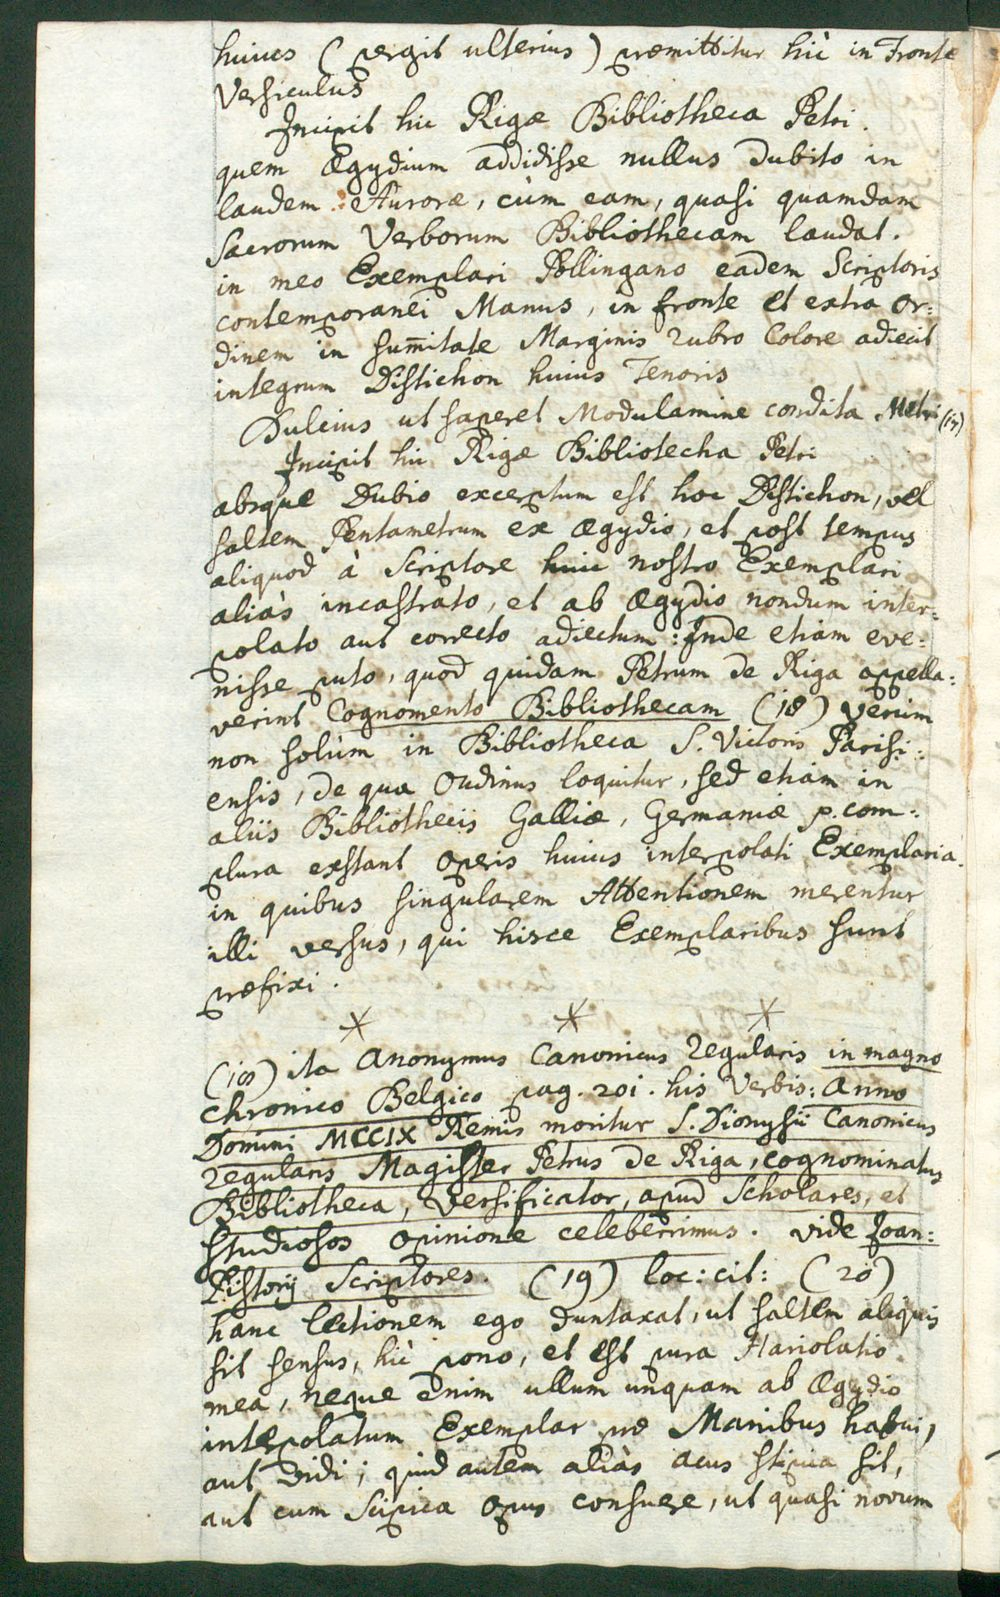 huius (pergit ulterius) præmittitur hìc in Fronte
Versiculus
Incipit hic Rigæ Bibliotheca Petri.
quem Ægydium addidisse nullus dubito in
laudem Auroræ, cùm eam, quasi quamdam
Sacrorum Verborum Bibliothecam laudat.
in meo Exemplari Pollingano eadem Scriptoris
contemporanei Manus, in fronte et extra Or=
dinem in sum̄itate Marginis rubro Colore adiecit
integrum Distichon huius Tenoris
Dulcius ut saperet Modulamine condita Metri
Incipit hic Rigæ Bibliotecha Petri
absque Dubio excerptum est hoc Distichon, vel
saltem Pentametrum ex Ægydio, et post tempus
aliquod à Scriptore huic nostro Exemplari
aliàs incastrato, et ab Ægydio nondum inter=
polato aut correcto adiectum: Inde etiam eve=
nisse puto, quod quidam Petrum de Riga appella=
verint Cognomento Bibliothecam (18) Verùm
non solùm in Bibliotheca S. Victoris Parisi=
ensis, de qua Oudinus loquitur, sed etiam in
aliis Bibliothecis Galliæ, Germaniæ p. com=
plura exstant operis huius interpolati Exemplaria.
in quibus singularem Attentionem merentur
illi versus, qui hisce Exemplaribus sunt
præfixi.
(18) ita Anonymus Canonicus regularis in magno
chronico Belgico pag. 201. his Verbis: Anno
Domini MCCIX Remis moritur S. Dionysii Canonicus
regularis Magister Petrus de Riga, cognominatus
Bibliotheca, Versificator, apud Scholares, et
studiosos opinione celeberrimus. vide Joan:
Pistorij Scriptores. (19) loc: cit: (20)
hanc lectionem ego duntaxat, ut saltem aliquis
sit sensus, hìc pono, et est pura Hariolatio
mea, neque enim ullum unquam ab Ægydio
interpolatum Exemplar præ Manibus habui,
aut vidi; quid autem aliàs acus stipica sit,
aut cum Scipica opus consuere, ut quasi novum